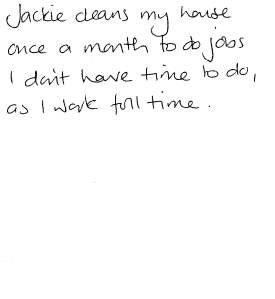 Jackie cleans my house
once a month to do jobs
I don't have time to do,
as I work full time.